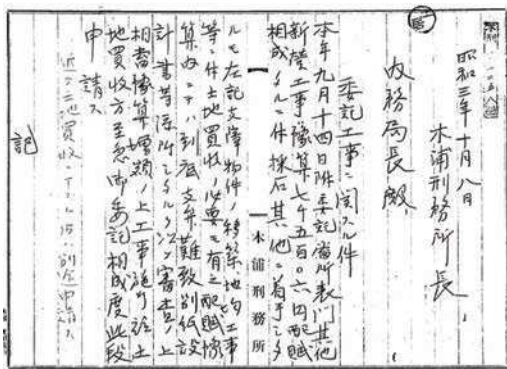 昭和三年十月八日
木浦刑務所長
内務局長殿
委託工事ニ関スル件
本年九月十四日附委託當所表門其他
新営工事豫算七千五百〇六円配賦
相成タルニ件採石其他ニ着手シタ
木浦刑務所
ルモ左記支障物件ノ移築地均工事
等ニ件土地買收ノ必要モ有之配賦豫
算内ニテハ到底支弁難致別紙設
計書等添附シタルヲ以審査ノ上
相当豫算増額ノ上工事施行並土
地買收方至急御委託相成度此段
申請ス
記